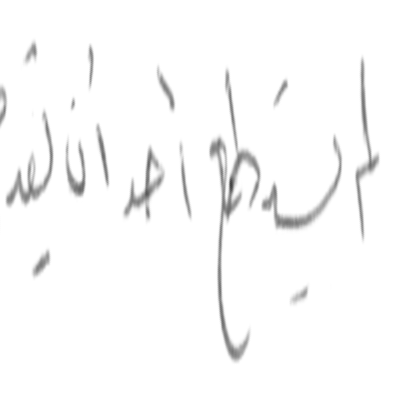 لم يستطع أحد أن